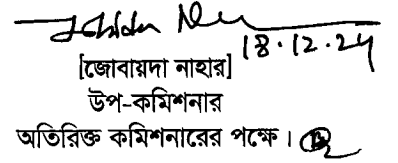 18.12.24
[জোবায়দা নাহার]
উপ-কমিশনার
অতিরিক্ত কমিশনারের পক্ষে।